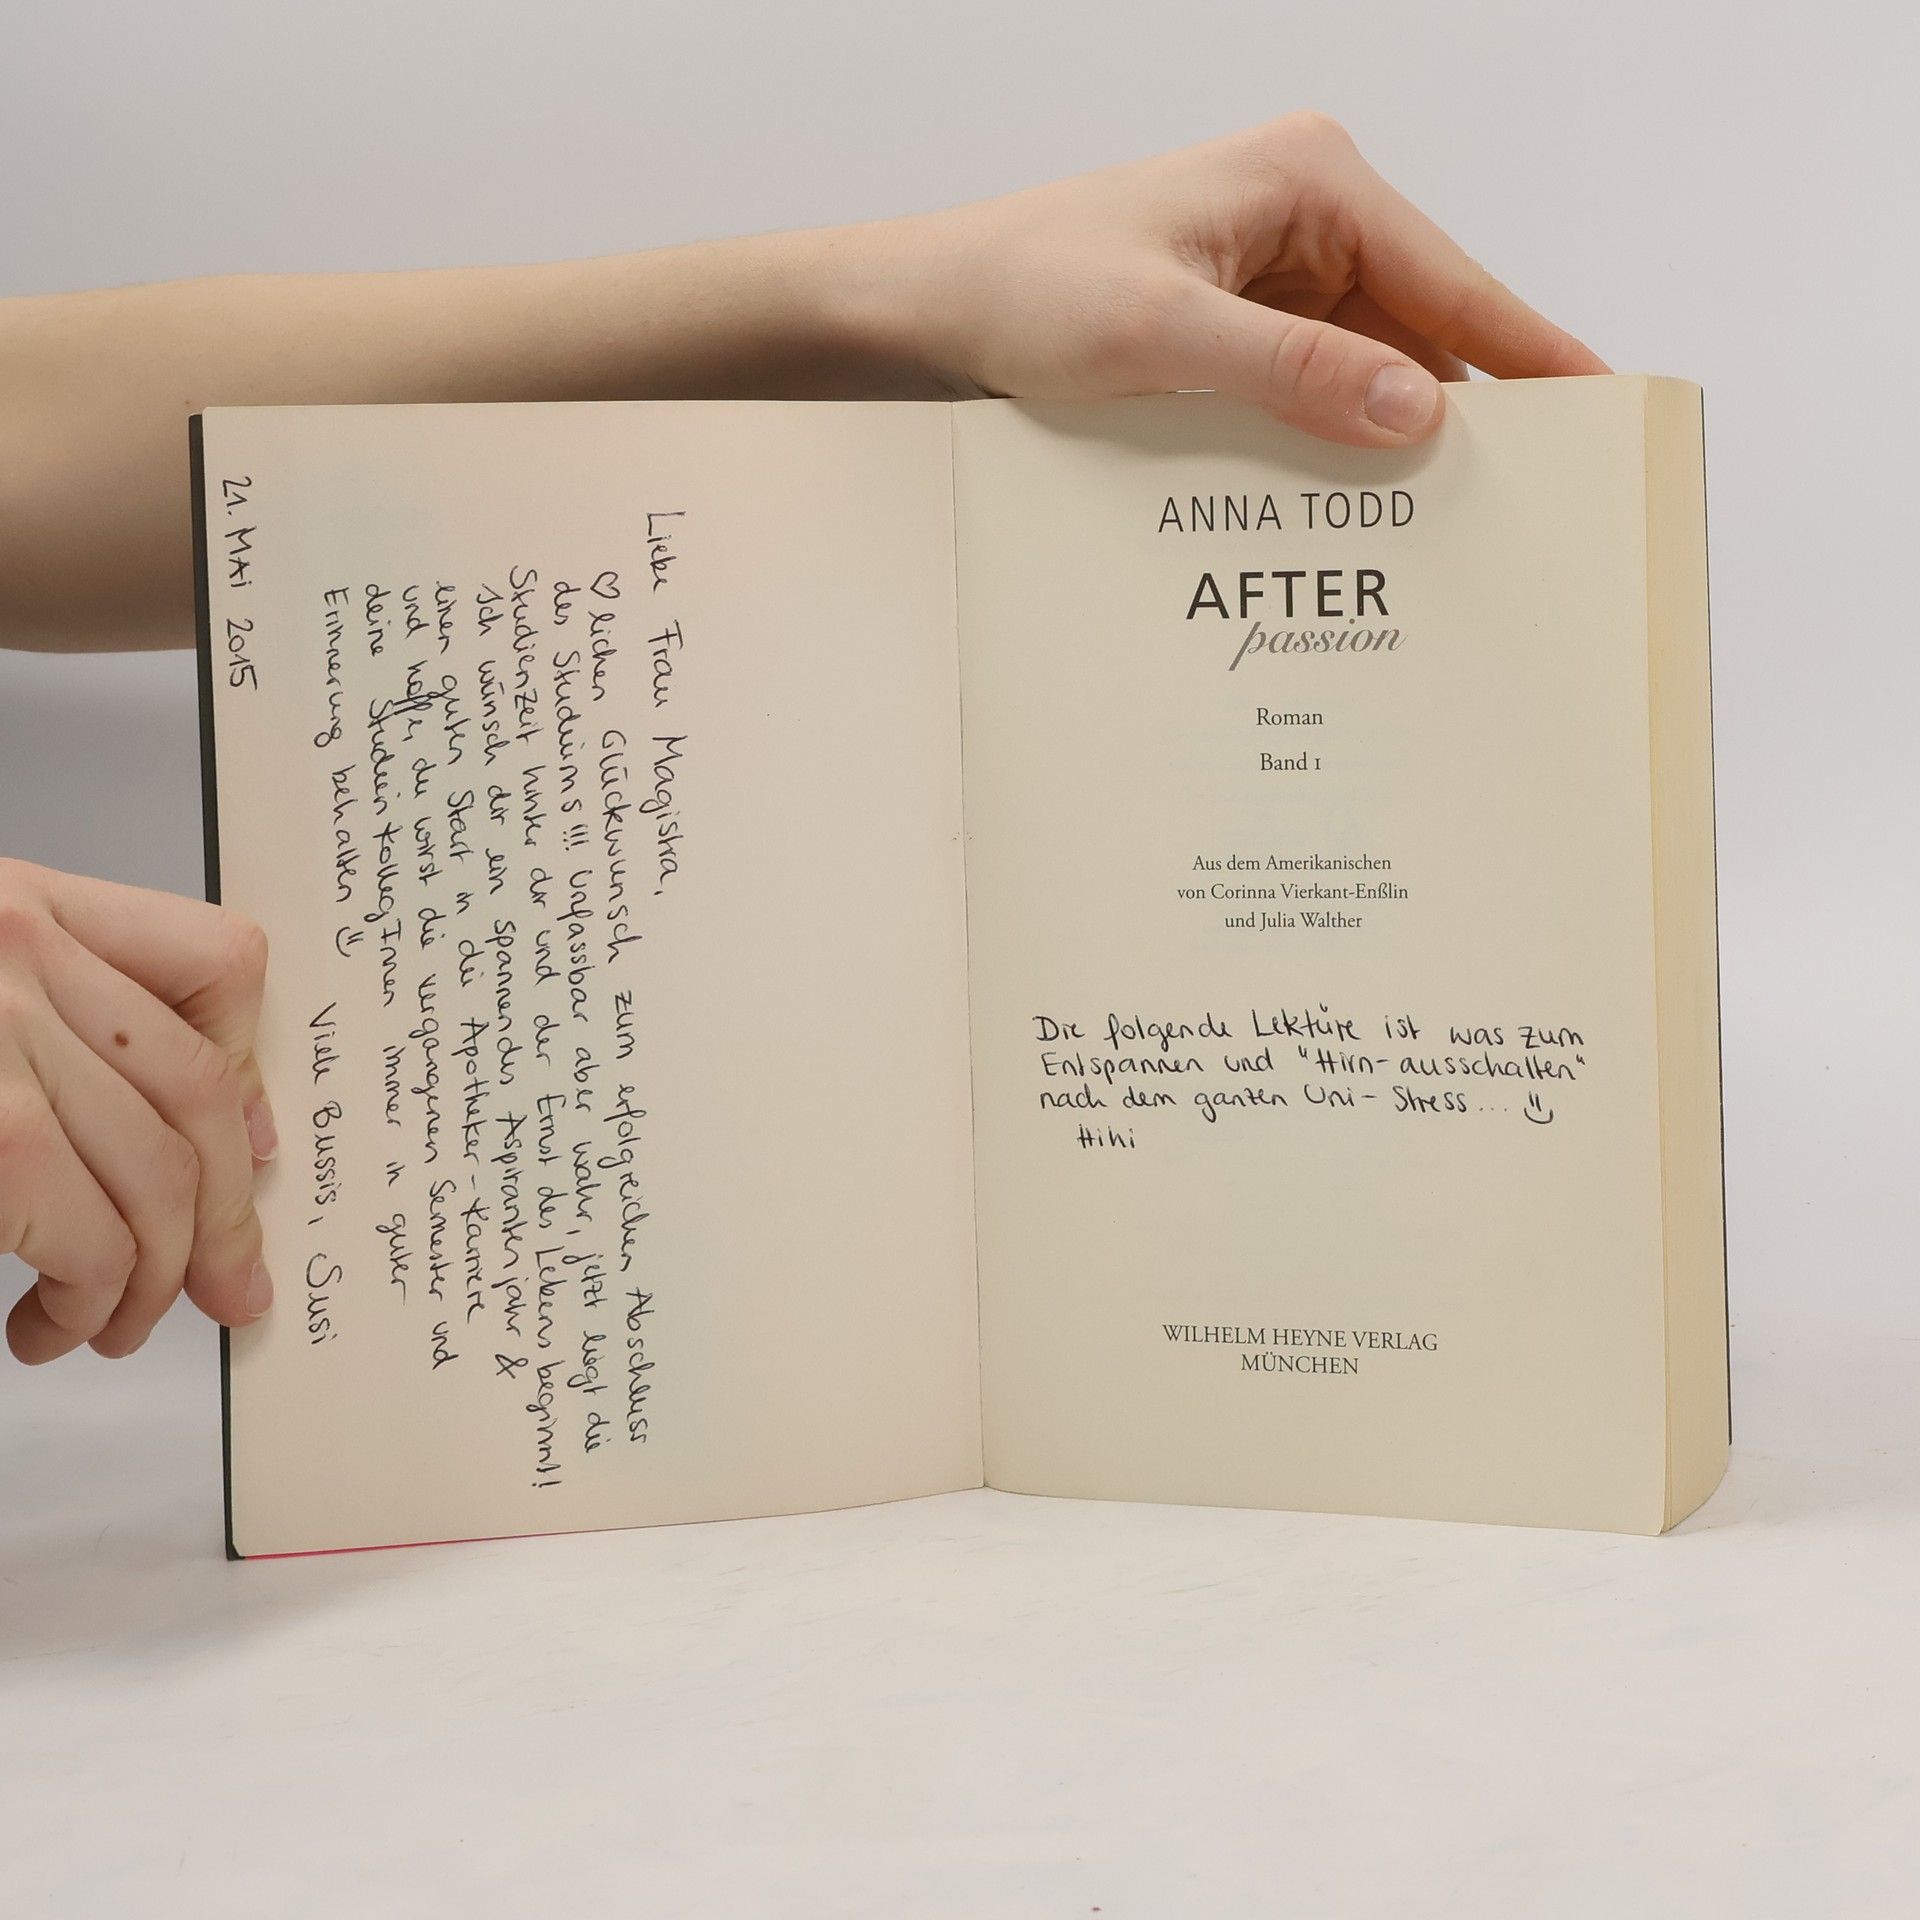 Liebe Frau Magistra,
♡lichen Glückwunsch zum erfolgreichen Abschluss
des Studiums!!! Unfassbar aber wahr, jetzt liegt die
Studienzeit hinter dir und der Ernst des Lebens beginnt!
Ich wünsch dir ein spannendes Aspirantenjahr &
einen guten Start in die Apotheker-Karriere
und hoffe, du wirst die vergangenen Semester und
deine StudienkollegInnen immer in guter
Erinnerung behalten ☺
Viele Bussis, Susi
21. MAI 2015
ANNA TODD
AFTER
passion
Roman
Band 1
Aus dem Amerikanischen
von Corinna Vierkant-Enßlin
und Julia Walther
Die folgende Lektüre ist was zum
Entspannen und "Hirn-ausschalten"
nach dem ganzen Uni-Stress... ☺
Hihi
WILHELM HEYNE VERLAG
MÜNCHEN